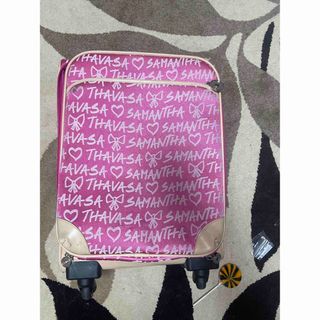 THAVASA ♡ SAMANTHA
♡ SAMANTHA THAVASA
THAVASA ♡ SAMANTHA
SAMANTHA THAVASA
THAVASA ♡ SAMANTHA
SAMANTHA THAVASA
THAVASA ♡ SAMANTHA
SAMANTHA THAVASA
THAVASA ♡ SAMANTHA